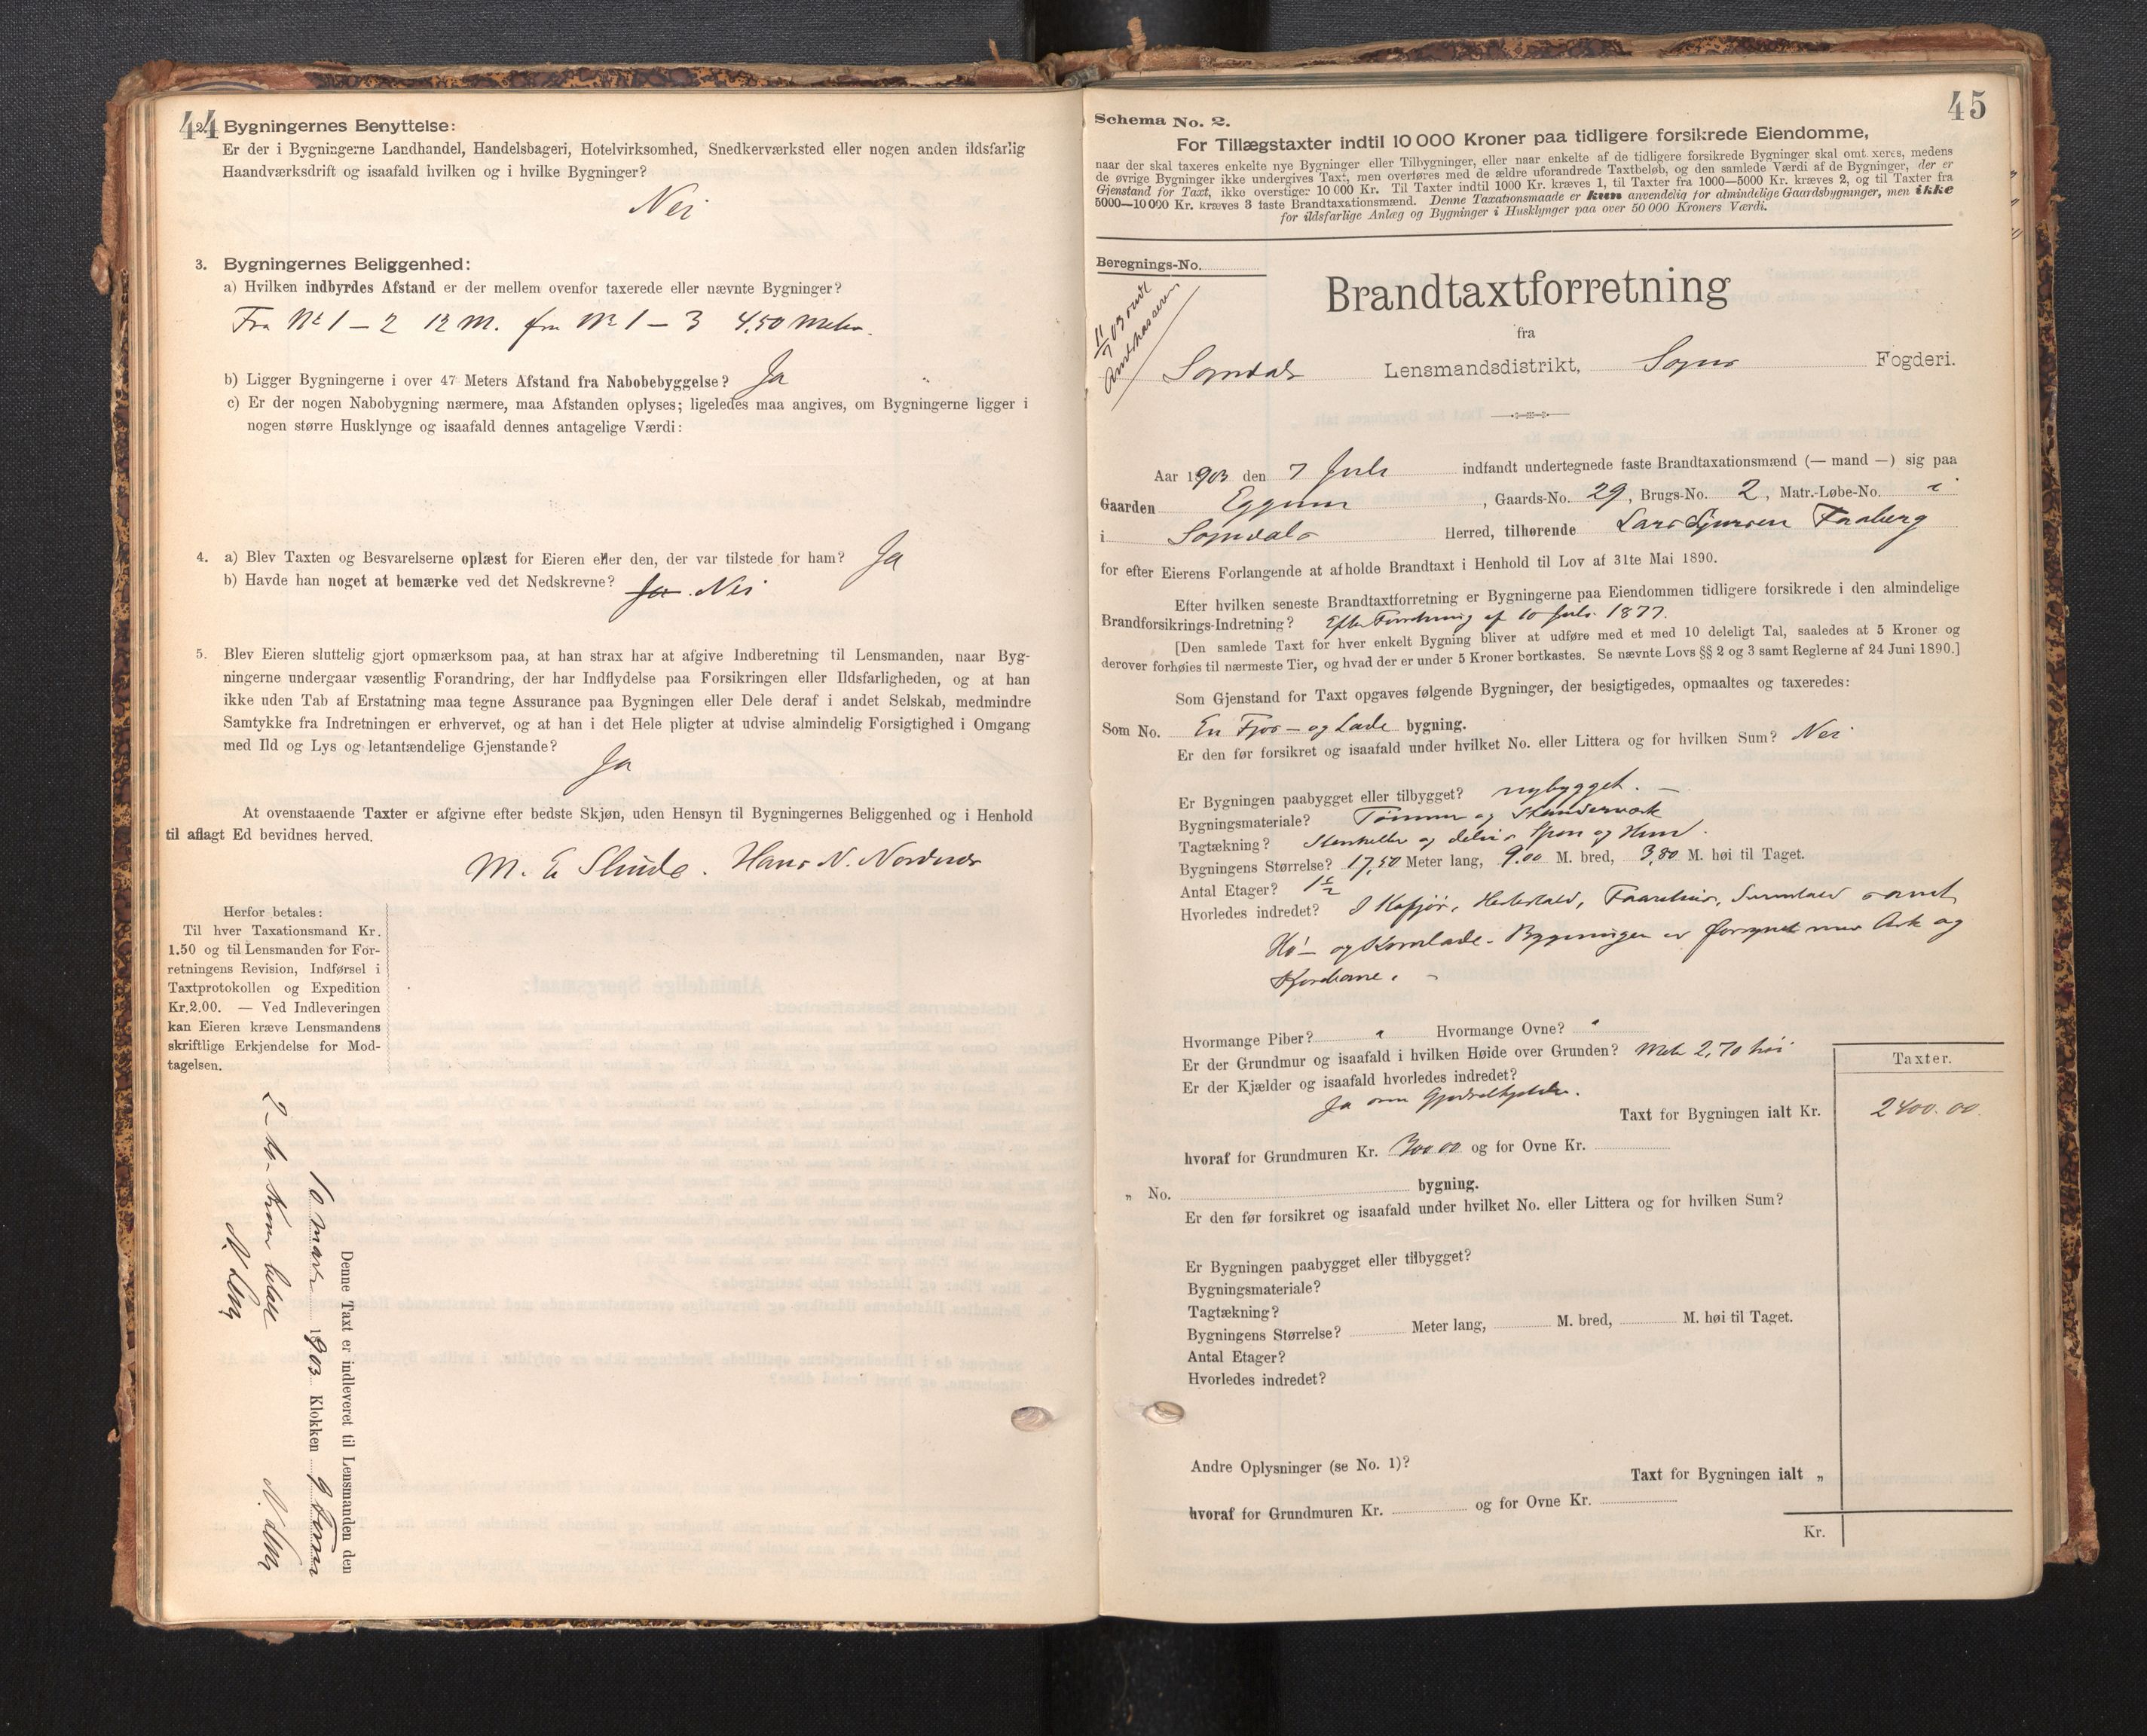 44
2. Bygningernes Benyttelse:
Er der i Bygningerne Landhandel, Handelsbageri, Hotelvirksomhed, Snedkerværksted eller nogen anden ildsfarlig
Haandværksdrift og isaafald hvilken og i hvilke Bygninger?
Nei
3. Bygningernes Beliggenhed:
a) Hvilken indbyrdes Afstand er der mellem ovenfor taxerede eller nævnte Bygninger?
Fra No 1 – 2 12 M. fra No 1 – 3 4,50 Meter.
b) Ligger Bygningerne i over 47 Meters Afstand fra Nabobebyggelse? Ja
c) Er der nogen Nabobygning nærmere, maa Afstanden oplyses; ligeledes maa angives, om Bygningerne ligger i
nogen større Husklynge og isaafald dennes antagelige Værdi:
4. a) Blev Taxten og Besvarelserne oplæst for Eieren eller den, der var tilstede for ham? Ja
b) Havde han noget at bemærke ved det Nedskrevne? Ja. Nei
5. Blev Eieren sluttelig gjort opmærksom paa, at han strax har at afgive Indberetning til Lensmanden, naar Byg-
ningerne undergaar væsentlig Forandring, der har Indflydelse paa Forsikringen eller Ildsfarligheden, og at han
ikke uden Tab af Erstatning maa tegne Assurance paa Bygningen eller Dele deraf i andet Selskab, medmindre
Samtykke fra Indretningen er erhvervet, og at han i det Hele pligter at udvise almindelig Forsigtighed i Omgang
med Ild og Lys og letantændelige Gjenstande?
Ja
At ovenstaaende Taxter er afgivne efter bedste Skjøn, uden Hensyn til Bygningernes Beliggenhed og i Henhold
til aflagt Ed bevidnes herved.
M. E Slinde. Hans N. Nordnes
Herfor betales:
Til hver Taxationsmand Kr.
1.50 og til Lensmanden for For-
retningens Revision, Indførsel i
Taxtprotokollen og Expedition
Kr.2.00. — Ved Indleveringen
kan Eieren kræve Lensmandens
skriftlige Erkjendelse for Mod-
tagelsen.
Denne Taxt er indleveret til Lensmanden den
10 marts 1903 Klokken 9 Form
2 – to – Kroner betalt
45
Schema No. 2.
For Tillægstaxter indtil 10 000 Kroner paa tidligere forsikrede Eiendomme,
naar der skal taxeres enkelte nye Bygninger eller Tilbygninger, eller naar enkelte af de tidligere forsikrede Bygninger skal omt xeres, medens
de øvrige Bygninger ikke undergives Taxt, men overføres med de ældre uforandrede Taxtbeløb, og den samlede Værdi af de Bygninger, der er
Gjenstand for Taxt, ikke overstiger 10 000 Kr. Til Taxter indtil 1000 Kr. kræves 1, til Taxter fra 1000—5000 Kr. kræves 2, og til Taxter fra
5000—10 000 Kr. kræves 3 faste Brandtaxationsmænd. Denne Taxationsmaade er kun anvendelig for almindelige Gaardsbygninger, men ikke
for ildsfarlige Anlæg og Bygninger i Husklynger paa over 50 000 Kroners Værdi.
Beregnings-No.
11/7 03
Brandtaxtforretning
fra
Sogndals Lensmandsdistrikt, Sogns Fogderi.
Aar 1903 den 7 Juli indfandt undertegnede faste Brandtaxationsmænd (— mand —) sig paa
Gaarden Eggum, Gaards-No. 29, Brugs-No. 2, Matr.-Løbe-No.
i Sogndals Herred, tilhørende Lars Sjursen Faaberg
for efter Eierens Forlangende at afholde Brandtaxt i Henhold til Lov af 31te Mai 1890.
Efter hvilken seneste Brandtaxtforretning er Bygningerne paa Eiendommen tidligere forsikrede i den almindelige
Brandforsikrings-Indretning? Efter Forretning af 10 Juli 1877.
[Den samlede Taxt for hver enkelt Bygning bliver at udføre med et med 10 deleligt Tal, saaledes at 5 Kroner og
derover forhøies til nærmeste Tier, og hvad der er under 5 Kroner bortkastes. Se nævnte Lovs §§ 2 og 3 samt Reglerne af 24 Juni 1890.]
Som Gjenstand for Taxt opgaves følgende Bygninger, der besigtigedes, opmaaltes og taxeredes:
Som No. En Fjøs – og Lade bygning.
Er den før forsikret og isaafald under hvilket No. eller Littera og for hvilken Sum? Nei
Er Bygningen paabygget eller tilbygget? nybygget. –
Bygningsmateriale? Tømmer og Stenderværk
Tagtækning? Stenheller og delvis Spon og Hun.
Bygningens Størrelse? 17,50 Meter lang, 9.00 M. bred, 3,80 M. høi til Taget.
Antal Etager? 1½
Hvorledes indredet? I Kofjør, Hestestald, Faarehus, samt
Hø – og Kornlade. Bygningen er forsynet med Ark og
Hvormange Piber? Hvormange Ovne?
Er der Grundmur og isaafald i hvilken Høide over Grunden? Meter 2,70 høi
Er der Kjælder og isaafald hvorledes indredet?
Ja som Gjødselkjelder.
Taxter.
Taxt for Bygningen ialt Kr. 2400.00.
hvoraf for Grundmuren Kr. 300.00 og for Ovne Kr.
„ No. bygning.
Er den før forsikret og isaafald under hvilket No. eller Littera og for hvilken Sum?
Er Bygningen paabygget eller tilbygget?
Bygningsmateriale?
Tagtækning?
Bygningens Størrelse? Meter lang, M. bred, M. høi til Taget.
Antal Etager?
Hvorledes indredet?
Andre Oplysninger (se No. 1)?
Taxt for Bygningen ialt „
hvoraf for Grundmuren Kr. og for Ovne Kr.
Kr.